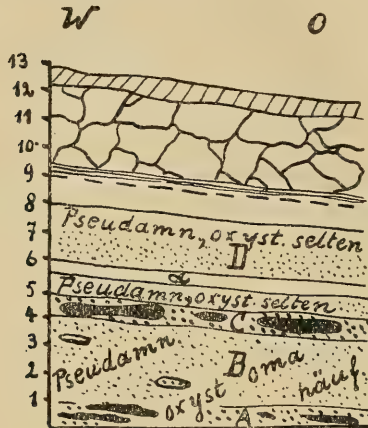 W O
13
12
11
10
9
8
7
6
5
4
3
2
1
Pseudamn, oxyst. selten
D
α
Pseudamn, oxyst. selten
C
Pseudamn oxyst B oma häuf.
A